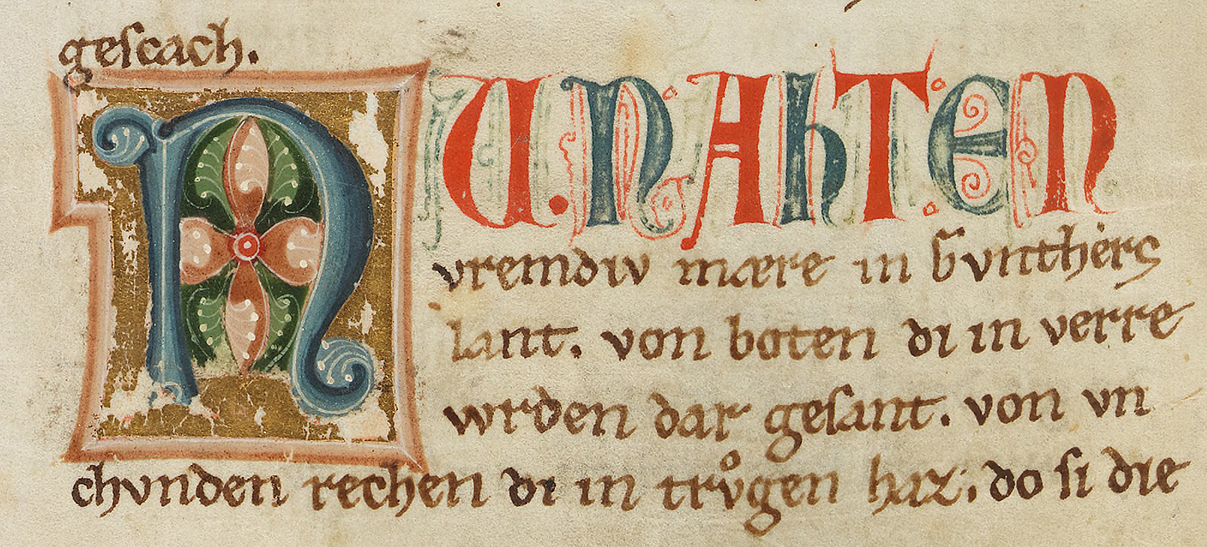 geſcach.
NU. NAHTEN
vremdiv mære in Gvnthers
lant. von boten di in verre
wrden dar geſant. von vn
chvnden rechen di in trůgen haz. do ſi die